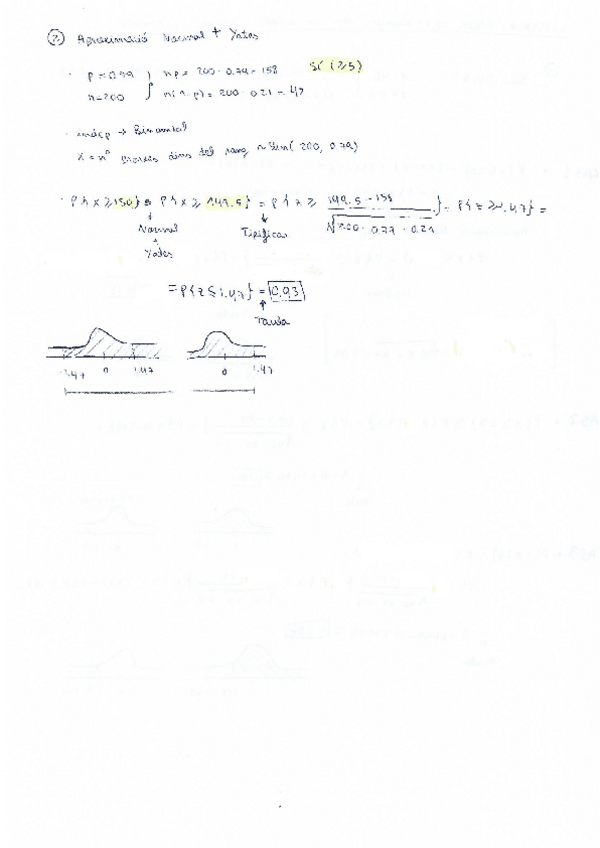 ② Aproximació Normal + Yates
· p = 0.79 } np = 200 · 0.79 = 158 SÍ (≥5)
n = 200 } n(1-p) = 200 · 0.21 = 42
· indep → Binomial
X = nº dins del rang ~ Bin(200, 0.79)
· P{X ≥ 150} = P{X ≥ 149.5} = P{Z ≥ 149.5 - 158 / √200 · 0.79 · 0.21} = P{Z ≥ -1.47} =
Normal Tipificar
+
Yates
= P{Z ≤ 1.47} = 0.93
Taula
-1.47 0 1.47 0 1.47